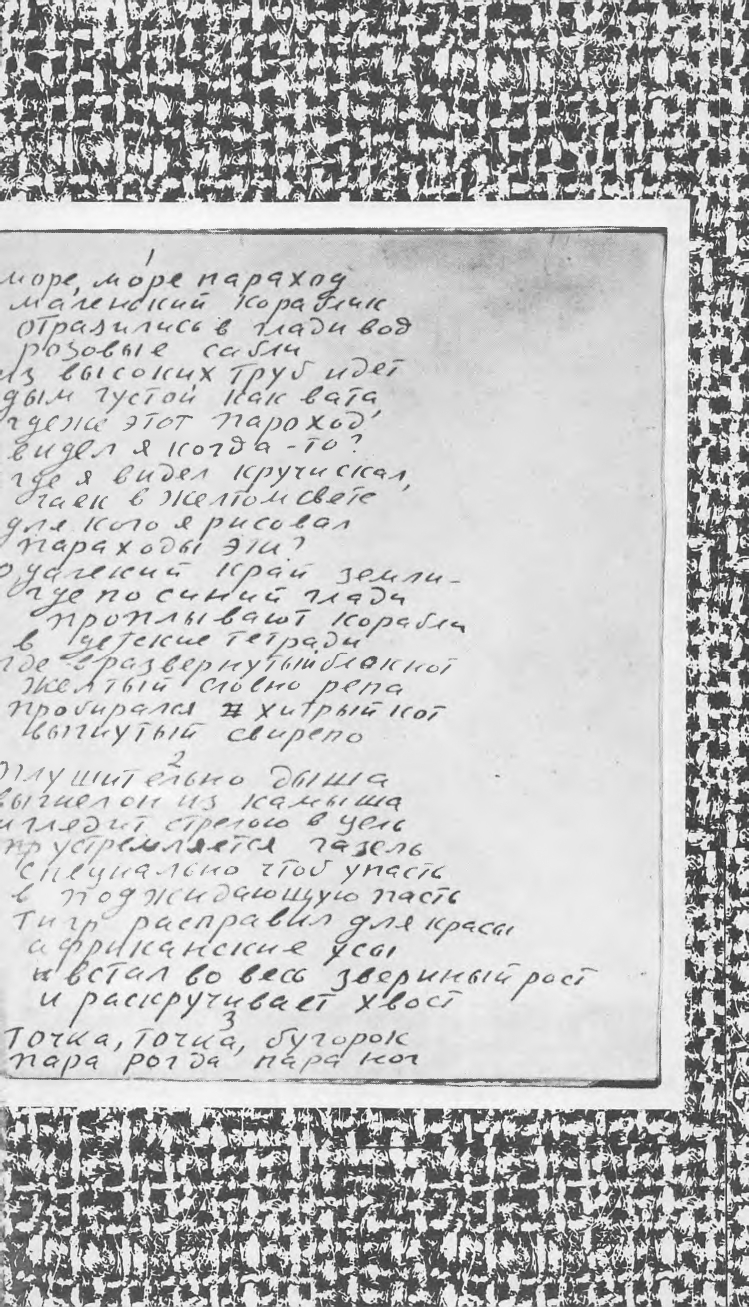 1
море, море параход
маленский кораблик
отразились в глади вод
розовые сабли
из высоких труб идет
дым густой как вата
где же этот пароход
видел я когда-то?
где я видел кручи скал,
чаек в желтом свете
для кого я рисовал
параходы эти?
о, далекий край земли-
где по синий глади
проплывают корабли
в детские тетради
где в развернутый блокнот
желтый словно репа
пробирался хитрый кот
выгнутый свирепо
2
оглушительно дыша
вышел он из камыша
и глядит стрелою в цель
устремляется газель
специально чтоб упасть
в поджидающую пасть
тигр расправил для красы
африканские усы
встал во весь звериный рост
и раскручивает хвост
3
точка, точка, бугорок
пара рог да пара ног